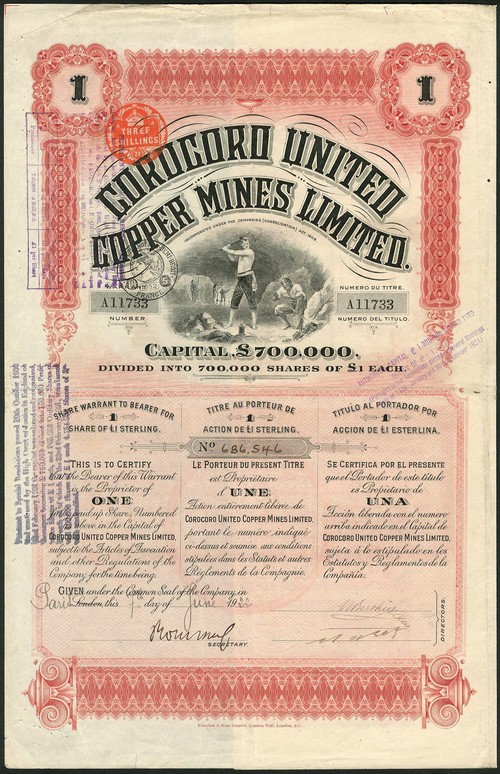 1
1
THREE
SHILLINGS
COROCORO UNITED
COPPER MINES LIMITED.
INCORPORATED UNDER THE COMPANIES (CONSOLIDATION) ACT, 1908.
A11733
NUMBER
NUMERO DU TITRE.
A11733
NUMERO DEL TITULO.
CAPITAL, £700,000,
DIVIDED INTO 700,000 SHARES OF £1 EACH.
SHARE WARRANT TO BEARER FOR
1
SHARE OF £1 STERLING.
TITRE AU PORTEUR DE
1
ACTION DE £1 STERLING.
TITULO AL PORTADOR POR
1
ACCION DE £1 ESTERLINA.
No 686,546
THIS IS TO CERTIFY
that the Bearer of this Warrant
is the Proprietor of
ONE
fully paid up Share, Numbered
as above in the Capital of
COROCORO UNITED COPPER MINES LIMITED,
subject to the Articles of Association
and other Regulations of the
Company for the time being.
LE PORTEUR DU PRESENT TITRE
est Propriétaire
d'UNE
Action entièrement libérée de
COROCORO UNITED COPPER MINES LIMITED,
portant le numero indiqué
ci-dessus et soumise aux conditions
stipulées dans les Statuts et autres
Règlements de la Compagnie.
SE CERTIFICA POR EL PRESENTE
que el Portador de este titulo
es Propietario de
UNA
Acción liberada con el numero
arriba indicado en el Capital de
COROCORO UNITED COPPER MINES LIMITED,
sujeta á lo estipulado en los
Estatutos y Reglamentos de la
Compañia.
GIVEN under the Common Seal of the Company in
Paris London, this 7 day of June 1922
SECRETARY.
DIRECTORS.
Waterlow & Sons Limited, London Wall, London, E.C.